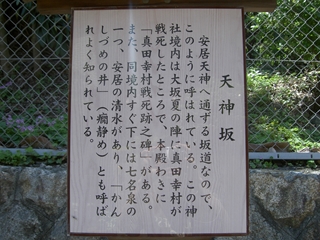 天神坂
安居天神へ通ずる坂道なので、
このように呼ばれている。この神
社境内は大坂夏の陣に真田幸村が
戦死したところで、本殿わきに
「真田幸村戦死跡之碑」がある。
また、同境内すぐ下には七名泉の
一つ、安居の清水があり、「かん
しづめの井」(癇静め)とも呼ば
れよく知られている。